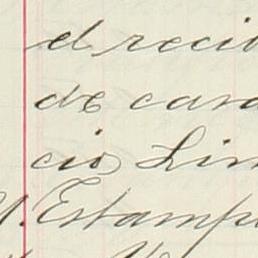 el recib
de cara
cio Lin
Estamp